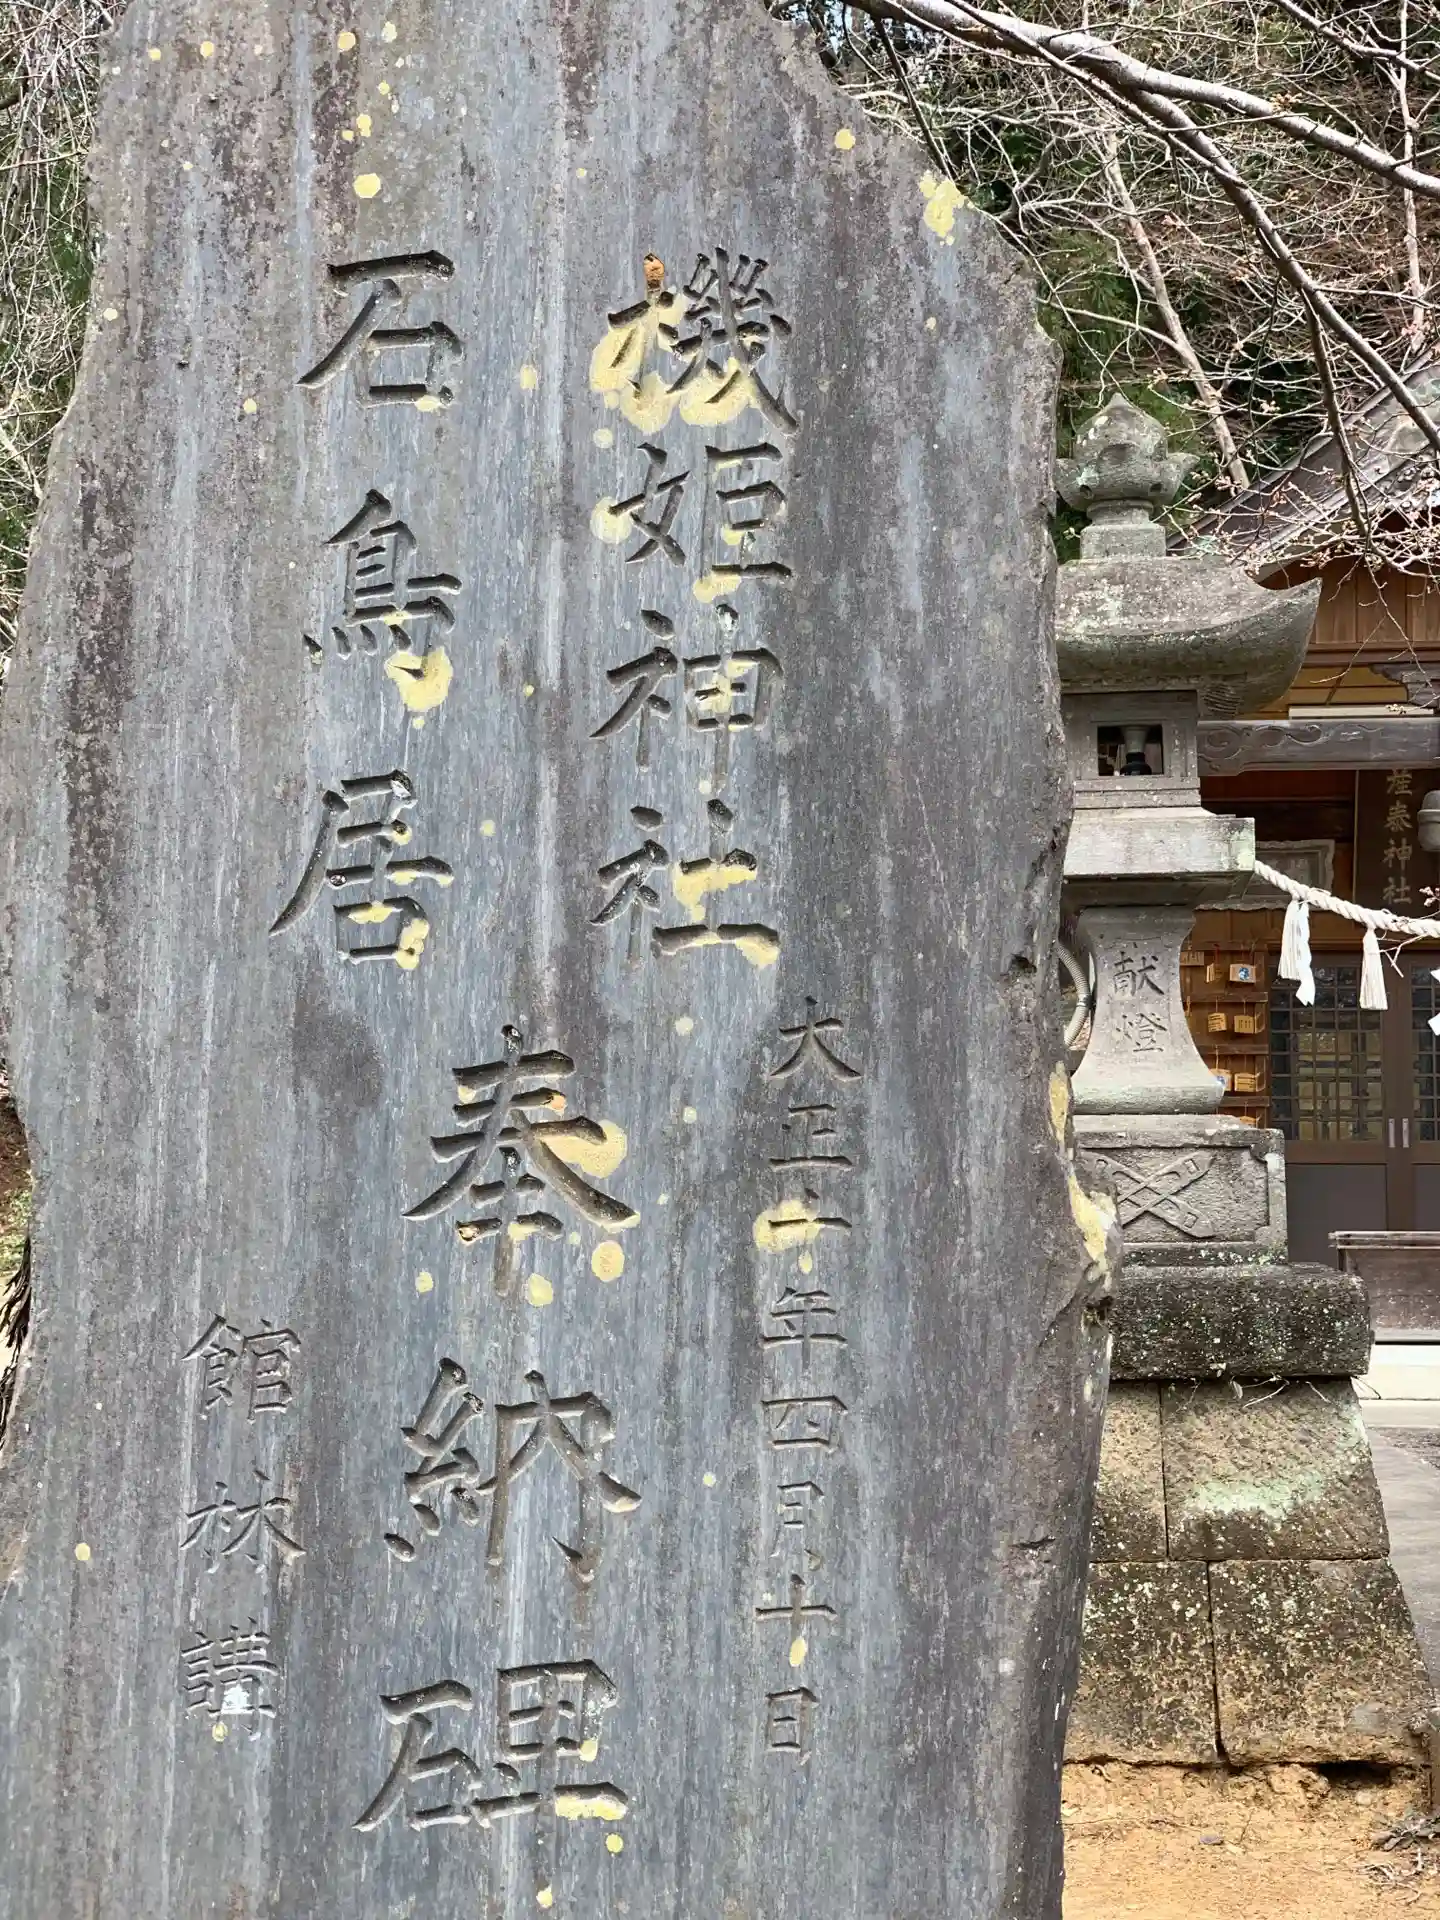 機姫神社
石鳥居
奉納碑
大正十年四月十日
館林講
献燈
産泰神社